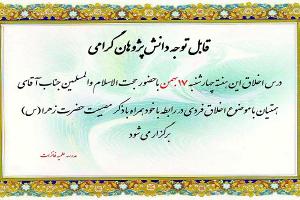 قابل توجه دانش پژوهان گرامی
درس اخلاق این هفته چهارشنبه ۱۷ بهمن با حضور حجت الاسلام والمسلمین جناب آقای
همتیان با موضوع اخلاق فردی در رابطه با خود همراه با ذکر مصیبت حضرت زهرا (س)
برگزار می شود
مدرسه علمیه